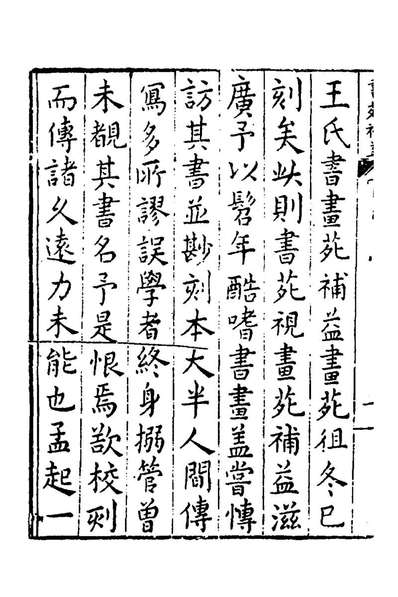 王氏書畫苑補益畫苑徂冬已
刻矣此則書苑視畫苑補益滋
廣予以髫年酷嗜書畫盖嘗愽
訪其書並尠刻本大半人間傳
寫多所謬誤學者終身搦管曾
未覩其書名予是恨焉欲校刻
而傳諸久遠力未能也孟起一